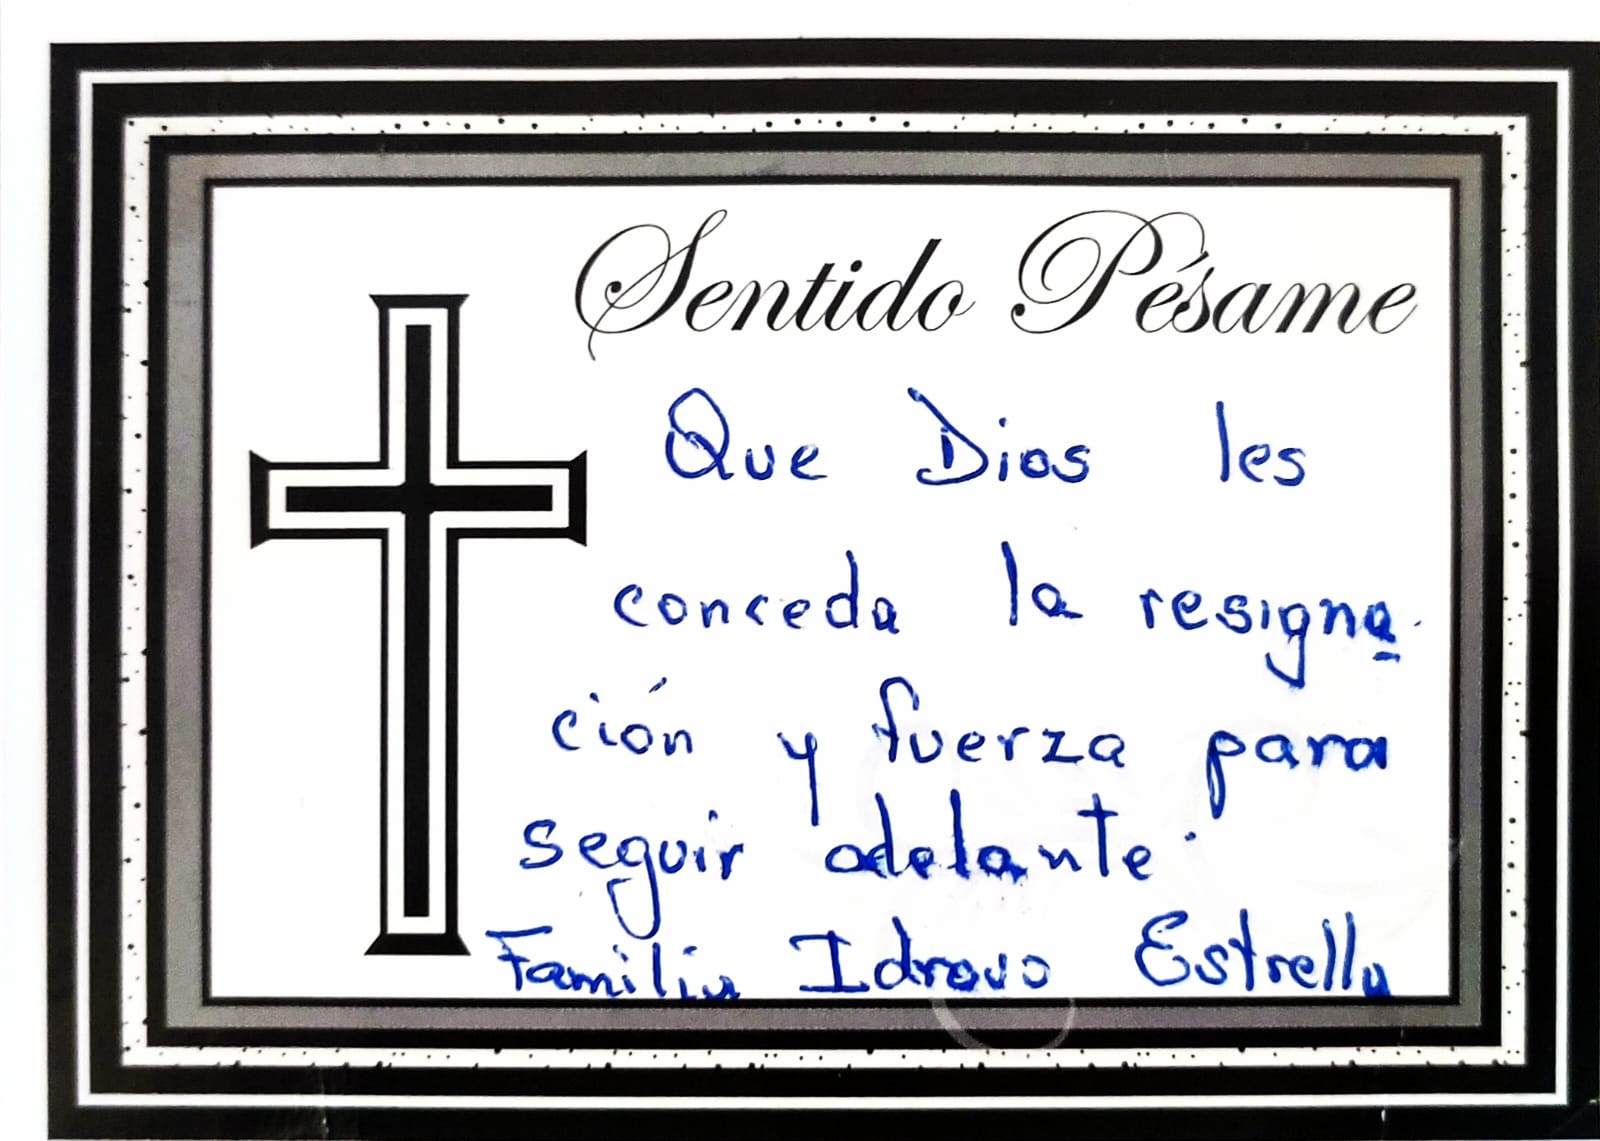 Sentido Pésame
Que Dios les
conceda la resigna
ción y fuerza para
seguir adelante.
Familia Idrovo Estrella